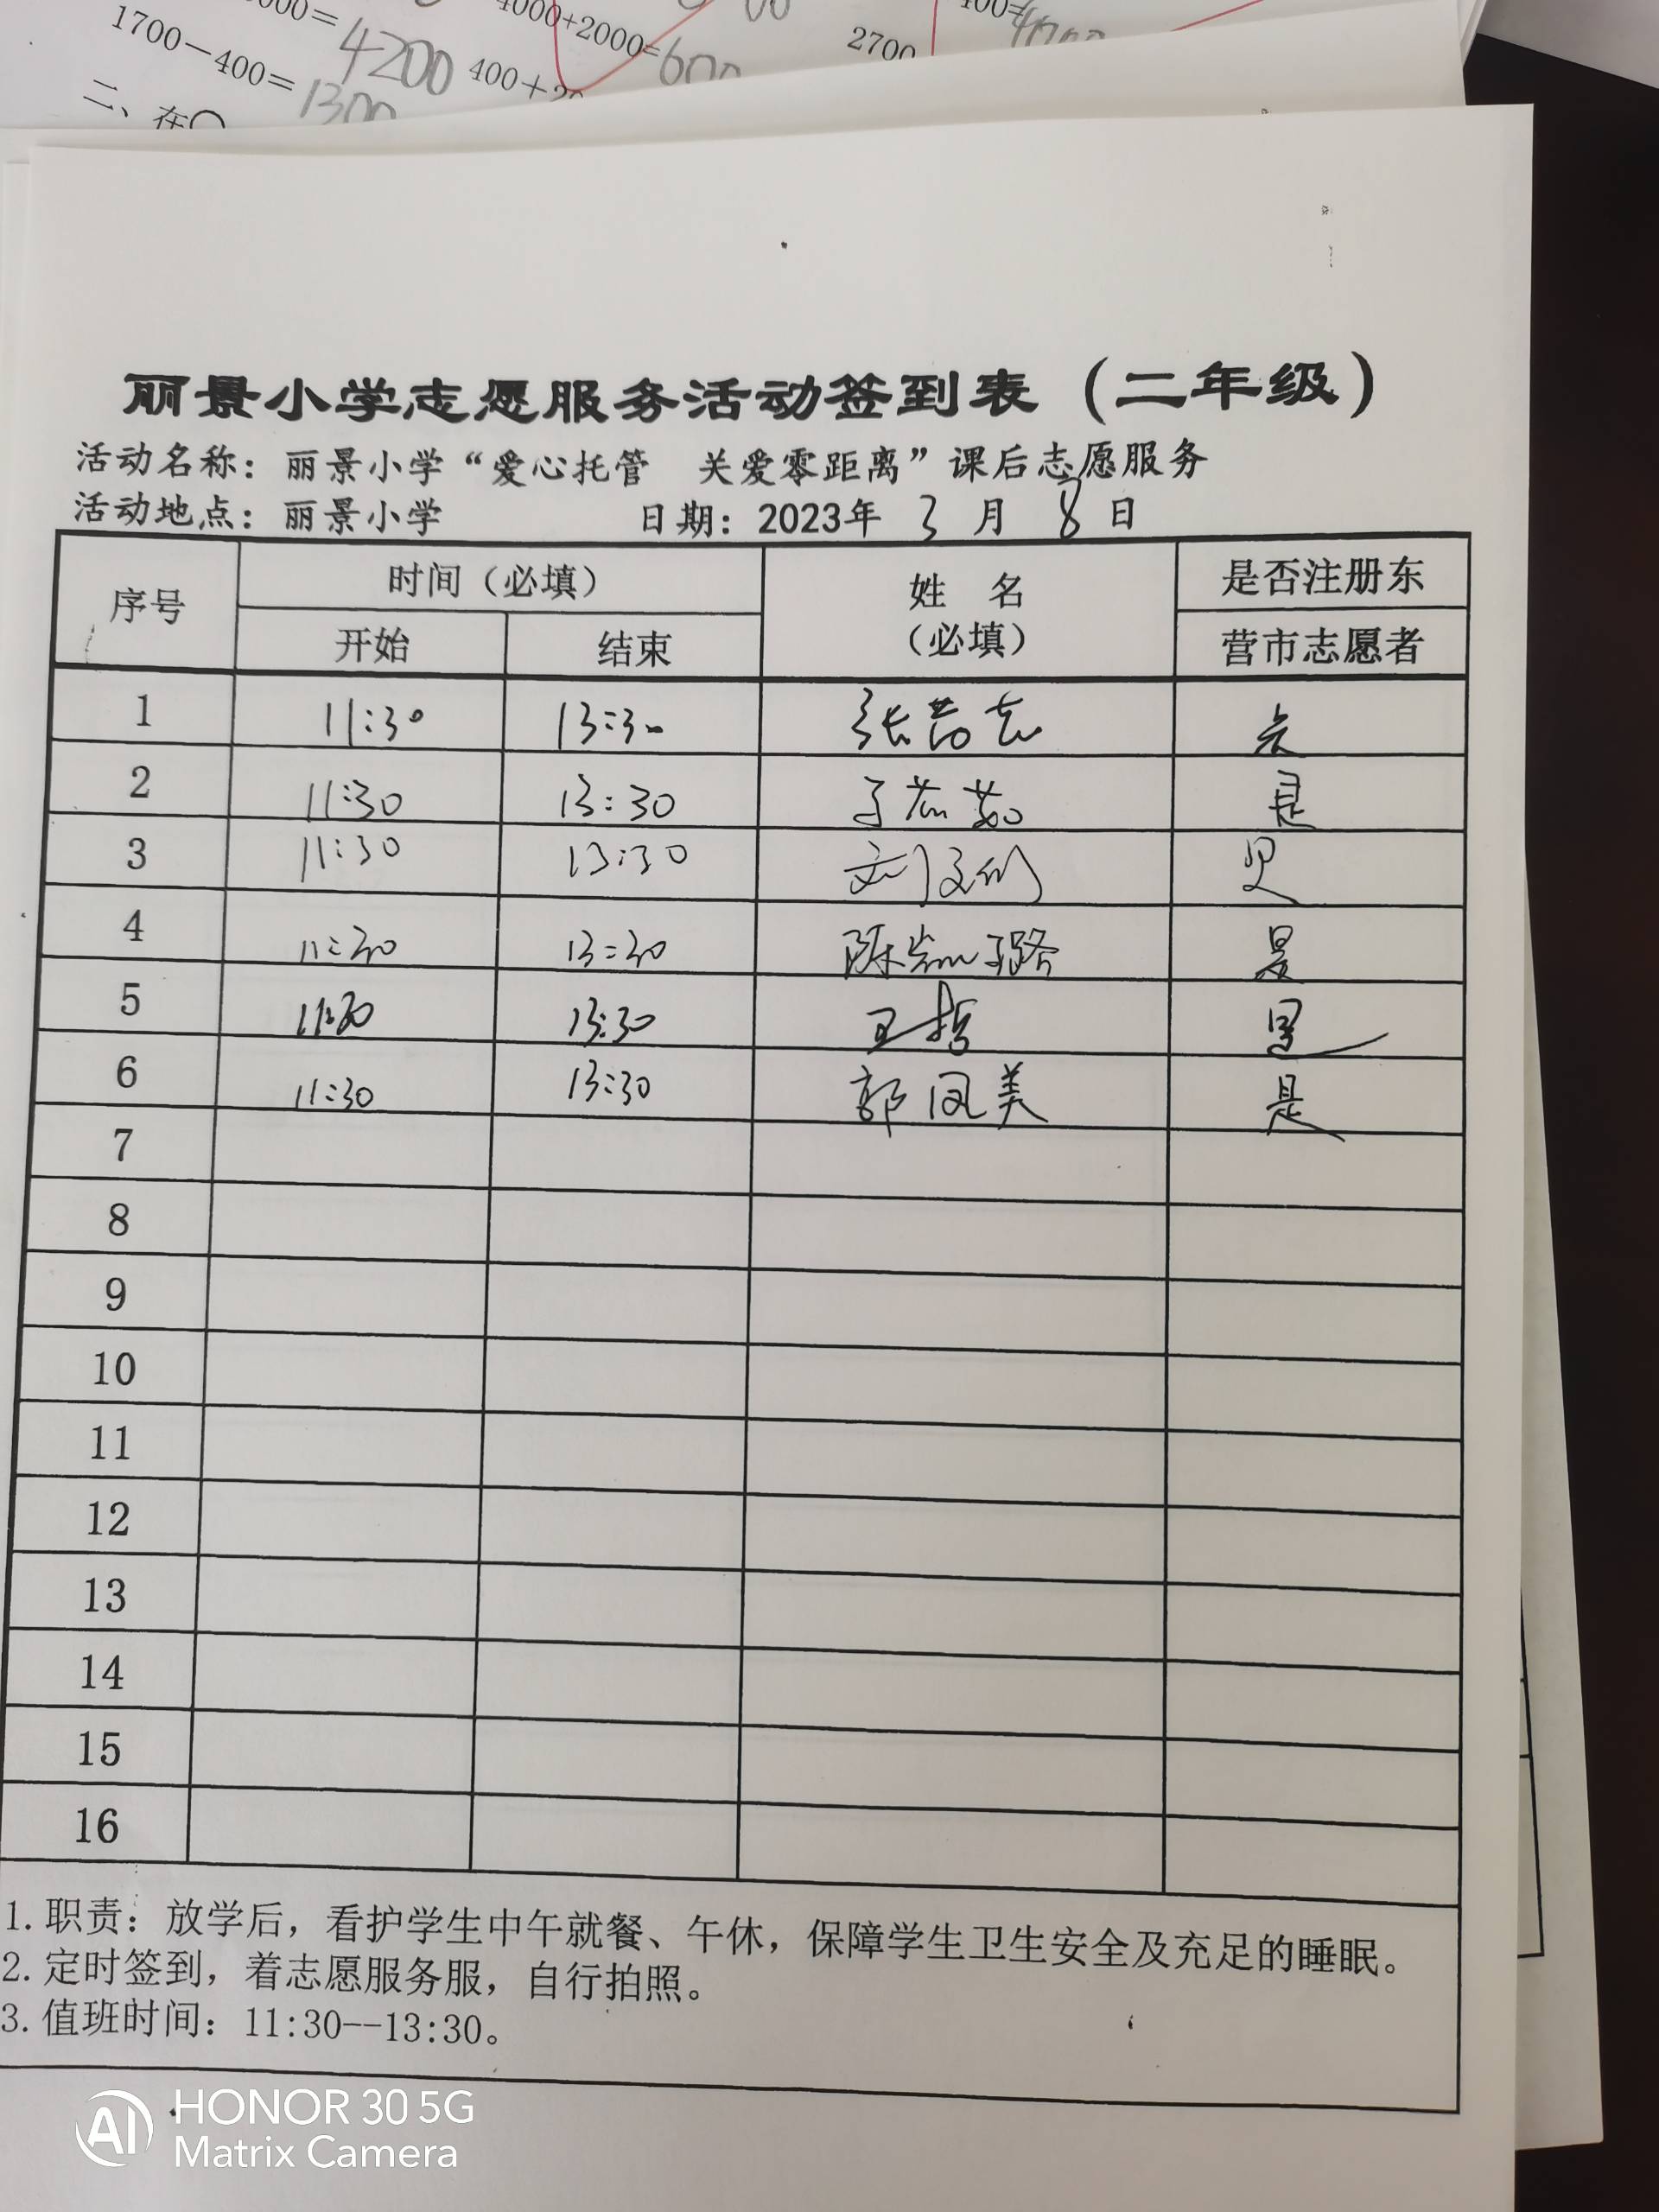 000= 4200 4000+2000=600
1700-400=1300 400+20 2700
二、在○
丽景小学志愿服务活动签到表（二年级）
活动名称：丽景小学“爱心托管 关爱零距离”课后志愿服务
活动地点：丽景小学 日期：2023年 3 月 8 日
序号 时间（必填） 姓 名 是否注册东
开始 结束 （必填） 营市志愿者
1 11:30 13:30
2 11:30 13:30 是
3 11:30 13:30 是
4 11:30 13:30 陈凯璐 是
5 11:30 13:30 王哲 是
6 11:30 13:30 郭凤美 是
7
8
9
10
11
12
13
14
15
16
1.职责：放学后，看护学生中午就餐、午休，保障学生卫生安全及充足的睡眠。
2.定时签到，着志愿服务服，自行拍照。
3.值班时间：11:30--13:30。
AI HONOR 30 5G
Matrix Camera